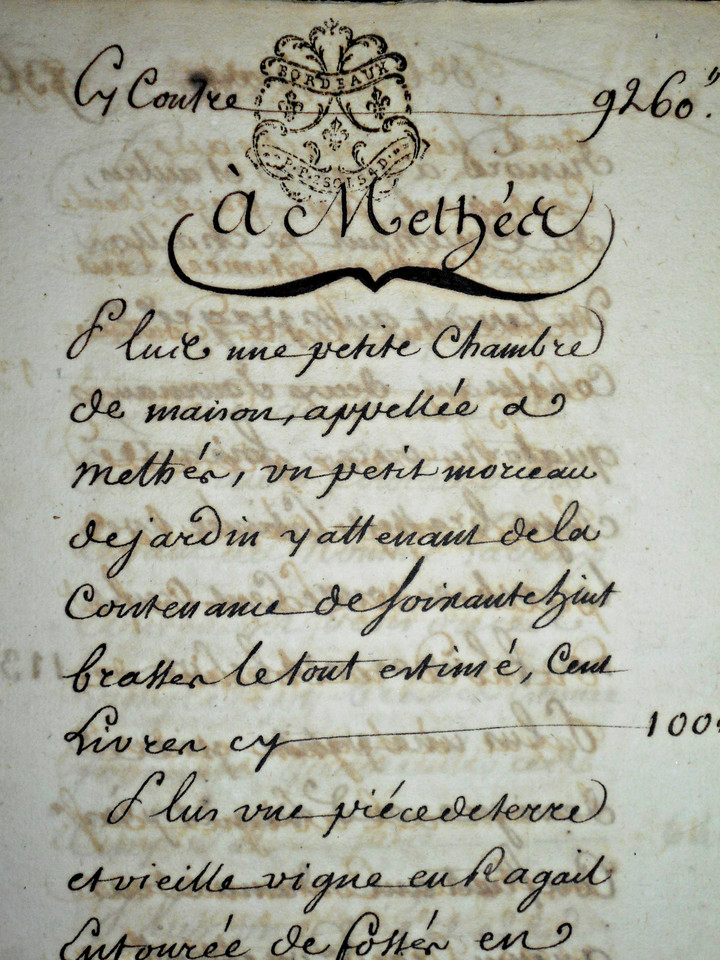 Cy Contre 9260"
BORDEAUX
à Methéé
Plus une petite Chambre
de maison, appellée a
methés, un petit morceau
de jardin y attenant de la
Contenance de soixante huit
brasses le tout estimé, Cent
Livres cy 100
Plus une piéce de terre
et vieille vigne en Ragail
Entourée de fossés en